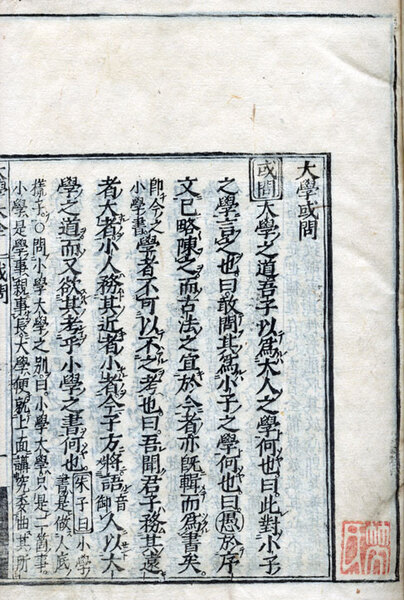 大學或問
或問大學之道吾子以爲大人之學何也曰此對小子
之學言之也曰敢問其爲小子之學何也曰愚於序
文已略陳之而古法之宜於今者亦既輯而爲書矣
即今之小學書學者不可以不之考也曰吾聞君子務其遠
者大者小人務其近者小者今子方將語音御人以大
學之道而又欲其考乎小學之書何也朱子曰小學書是做人底
樣子○問小學大學之別曰小學大學只是一箇事
小學是學事親事長大學便就上面講究委曲其所